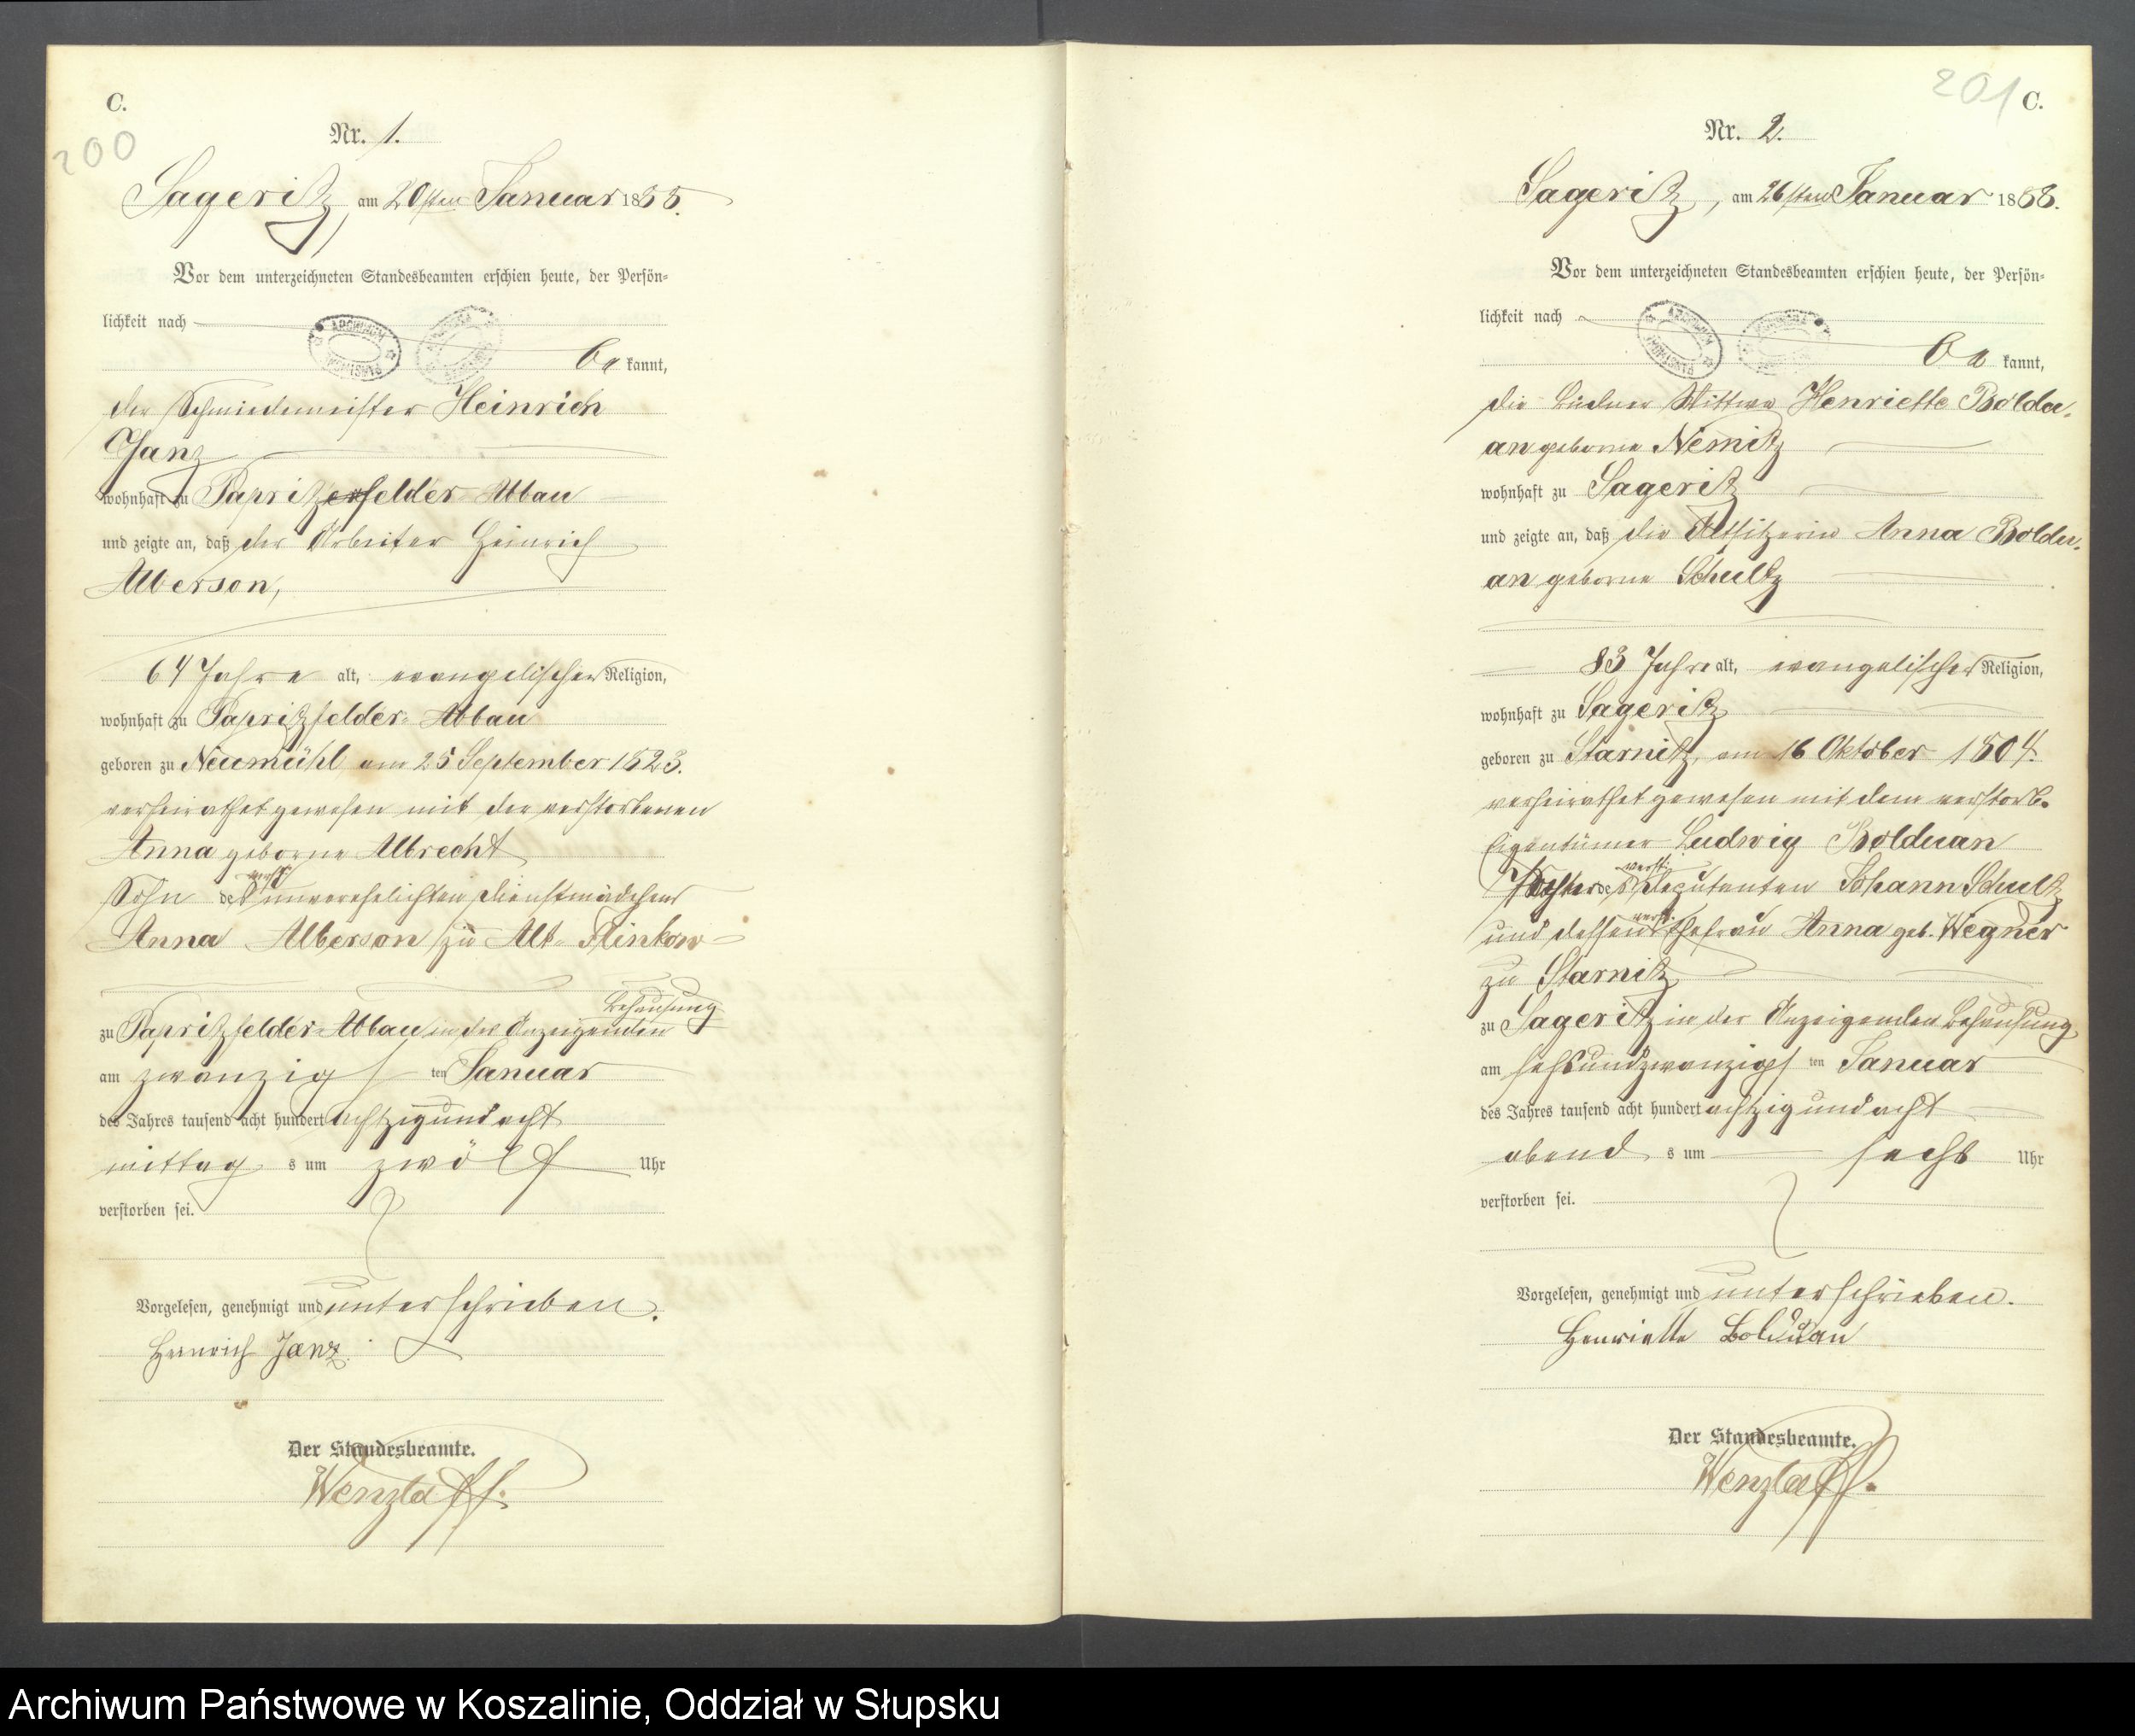 C.
200
Nr. 1.
Sageritz, am 20sten Januar 1888.
Vor dem unterzeichneten Standesbeamten erschien heute, der Persön-
lichkeit nach
be kannt,
der Schmiedemeister Heinrich
Janz
wohnhaft zu Papritzfelder Abbau
und zeigte an, daß der Arbeiter Heinrich
Alberson,
64 Jahre alt, evangelischer Religion,
wohnhaft zu Papritzfelder-Abbau
geboren zu Neumühl am 25 September 1823.
verheirathet gewesen mit der verstorbenen
Anna geborne Albrecht
Sohn des verst. unverehelichten Dienstmädchens
Anna Alberson zu Alt-Flinkow
Behausung
zu Papritzfelder-Abbau in des Anzeigenden
am zwanzigs ten Januar
des Jahres tausend acht hundert achtzig und acht
mittag s um zwölf Uhr
verstorben sei.
Vorgelesen, genehmigt und unterschrieben.
Heinrich Janz.
Der Standesbeamte.
Wenzlaff.
201 C.
Nr. 2.
Sageritz, am 26sten Januar 1888.
Vor dem unterzeichneten Standesbeamten erschien heute, der Persön-
lichkeit nach
be kannt,
die Büdner Wittwe Henriette Boldu-
an geborne Nemitz
wohnhaft zu Sageritz
und zeigte an, daß die Altsitzerin Anna Boldu-
an geborne Schultz
83 Jahre alt, evangelischer Religion,
wohnhaft zu Sageritz
geboren zu Starnitz, am 16 Oktober 1804.
verheirathet gewesen mit dem verstorb.
Eigentümer Ludwig Bolduan
Tochter des verst. Deputanten Johann Schultz
und dessen verst. Ehefrau Anna geb. Wegner
zu Starnitz
zu Sageritz in der Anzeigenden Behausung
am sechsundzwanzigs ten Januar
des Jahres tausend acht hundert achtzig und acht
abend s um sechs Uhr
verstorben sei.
Vorgelesen, genehmigt und unterschrieben.
Henriette Bolduan
Der Standesbeamte.
Wenzlaff.
Archiwum Państwowe w Koszalinie, Oddział w Słupsku